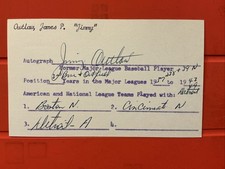 Outlaw, James P. "Jimmy"
Jimmy Outlaw
Autograph
Former Major League Baseball Player
3rd Base & Outfield
Position Years in the Major Leagues 19 to 19
American and National League Teams Played with:
1. Boston N 2. Cincinnati N
3. Detroit - A 4.